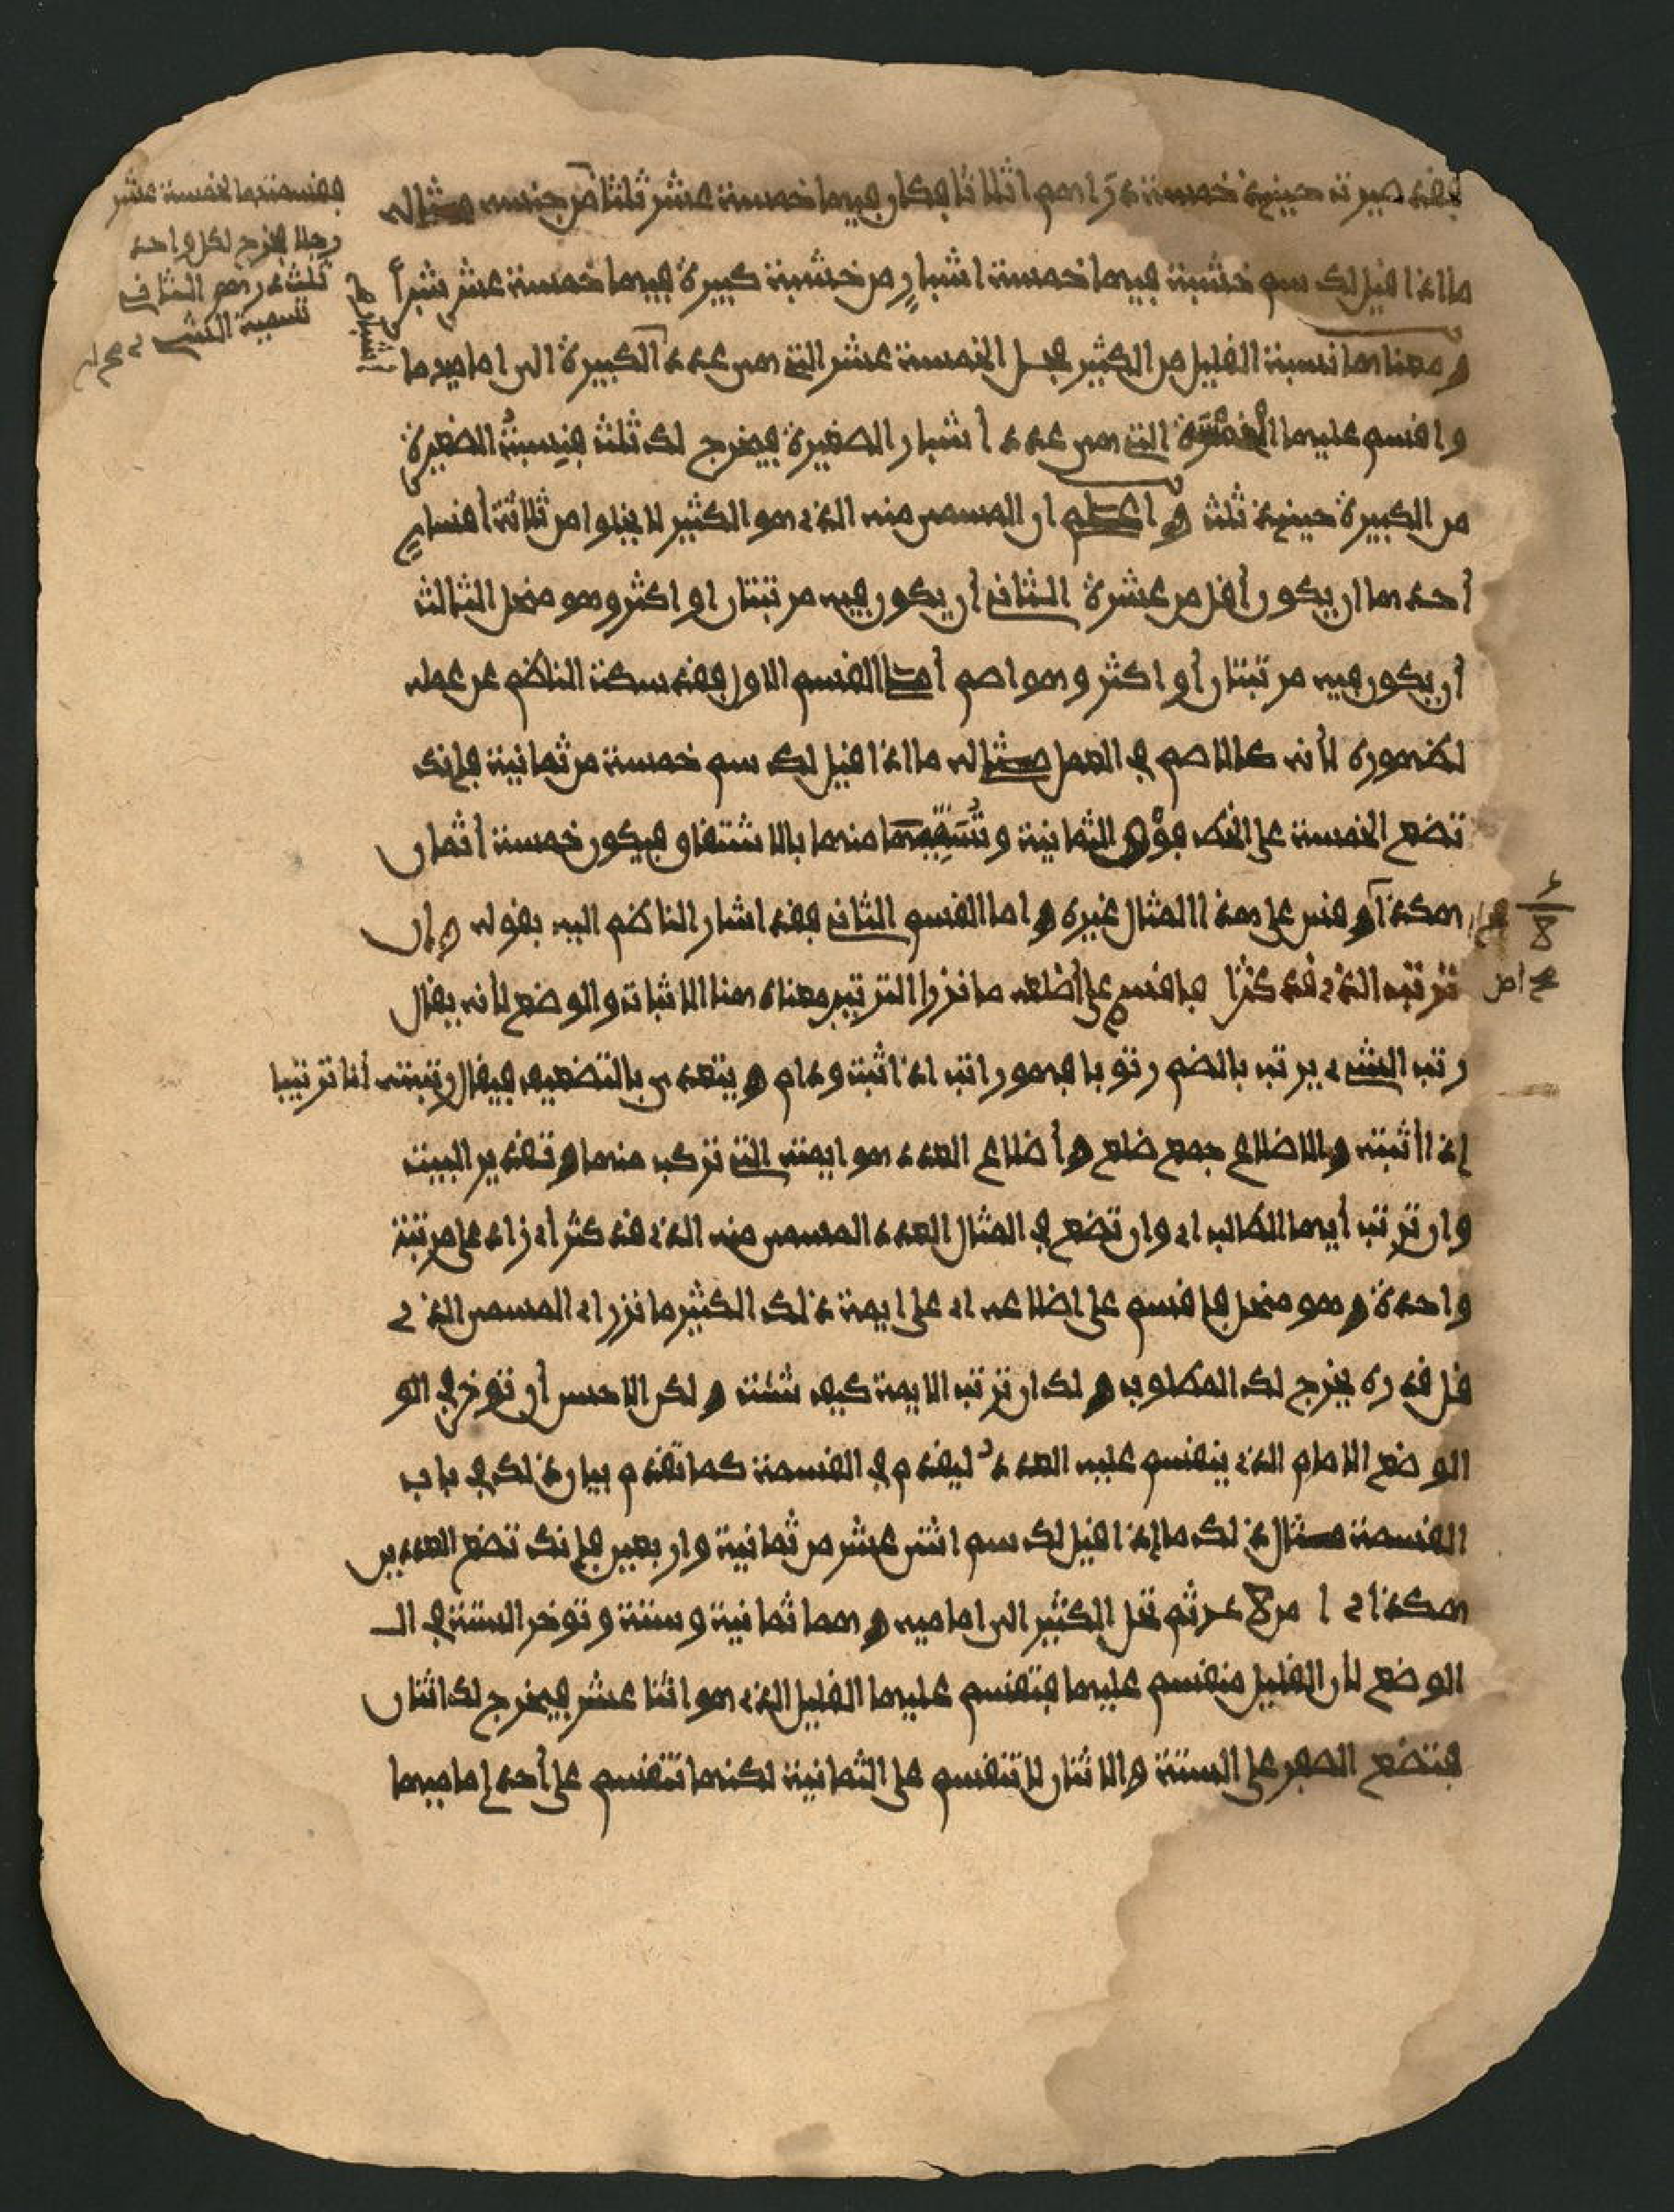 فقد صيرت حينئذ خمسة دراهم اثلاثا فكان فيها خمسة عشر ثلثا من جنسه مثاله
ما اذا قيل لك سم خشبة فيها خمسة اشبار من خشبة كبيرة فيها خمسة عشر شبرا
ومعناها نسبة القليل من الكثير فحل الخمسة عشر التي هي عدد الكبيرة الى اماميها
واقسم عليها الخمسة التي هي عدد أشبار الصغيرة فيخرج لك ثلث فنسبة الصغيرة
من الكبيرة حينئذ ثلث واعلم ان المسمى منه الذي هو الكثير لا يخلوا من ثلاثة أقسام
أحدها ان يكون أقل من عشرة الثاني أن يكون فيه مرتبتان او اكثر وهو منحل الثالث
أن يكون فيه مرتبتان أو اكثر وهو اصم أما القسم الاول فقد سكت الناظم عن عمله
لظهوره لأنه كالاصم في العمل مثاله ما اذا قيل لك سم خمسة من ثمانية فإنك
تضع الخمسة على الخط فوق الثمانية وتسميها منها بالاشتقاق فيكون خمسة أثمان
هكذا وقس على هذا المثال غيره واما القسم الثاني فقد اشار الناظم اليه بقوله وان
ترتب الذي قد كثرا فاقسم على أضلعه ما نزرا الترتيب معناه هنا الاثبات والوضع لأنه يقال
رتب الشيء يرتب بالضم رتوبا فهو راتب اذا ثبت ودام ويتعدى بالتضعيف فيقال رتبته أنا ترتيبا
إذا أثبته والاضلاع جمع ضلع وأضلاع العدد هو ايمته التي تركب منها وتقدير البيت
وان ترتب أيها الطالب اي وان تضع في المثال العدد المسمى منه الذي قد كثر أي زاد على مرتبة
واحدة وهو منحل فاقسم على اضلاعه اي على ايمة ذلك الكثير ما نزر اي المسمى الذي
قل قدره يخرج لك المطلوب ولك ان ترتب الايمة كيف شئت ولكن الاحسن أن توخر في الو
الوضع الامام الذي ينقسم عليه العدد ليقدم في القسمة كما تقدم بيان ذلك في باب
القسمة مثال ذلك ما إذا قيل لك سم اثني عشر من ثمانية واربعين فإنك تضع العددين
هكذا ثم تحل الكثير الى اماميه وهما ثمانية وستة وتوخر الستة في الـ
الوضع لأن القليل منقسم عليها فتقسم عليها القليل الذي هو اثنا عشر فيخرج لك اثنان
فتضع الصفر على الستة والاثنان لا تنقسم على الثمانية لكنها تنقسم على أحد إماميها
فقسمتها لخمسة عشر
رجلا فخرج لكل واحد
ثلث درهم الثاني
تسمية الشيء
٥
٨